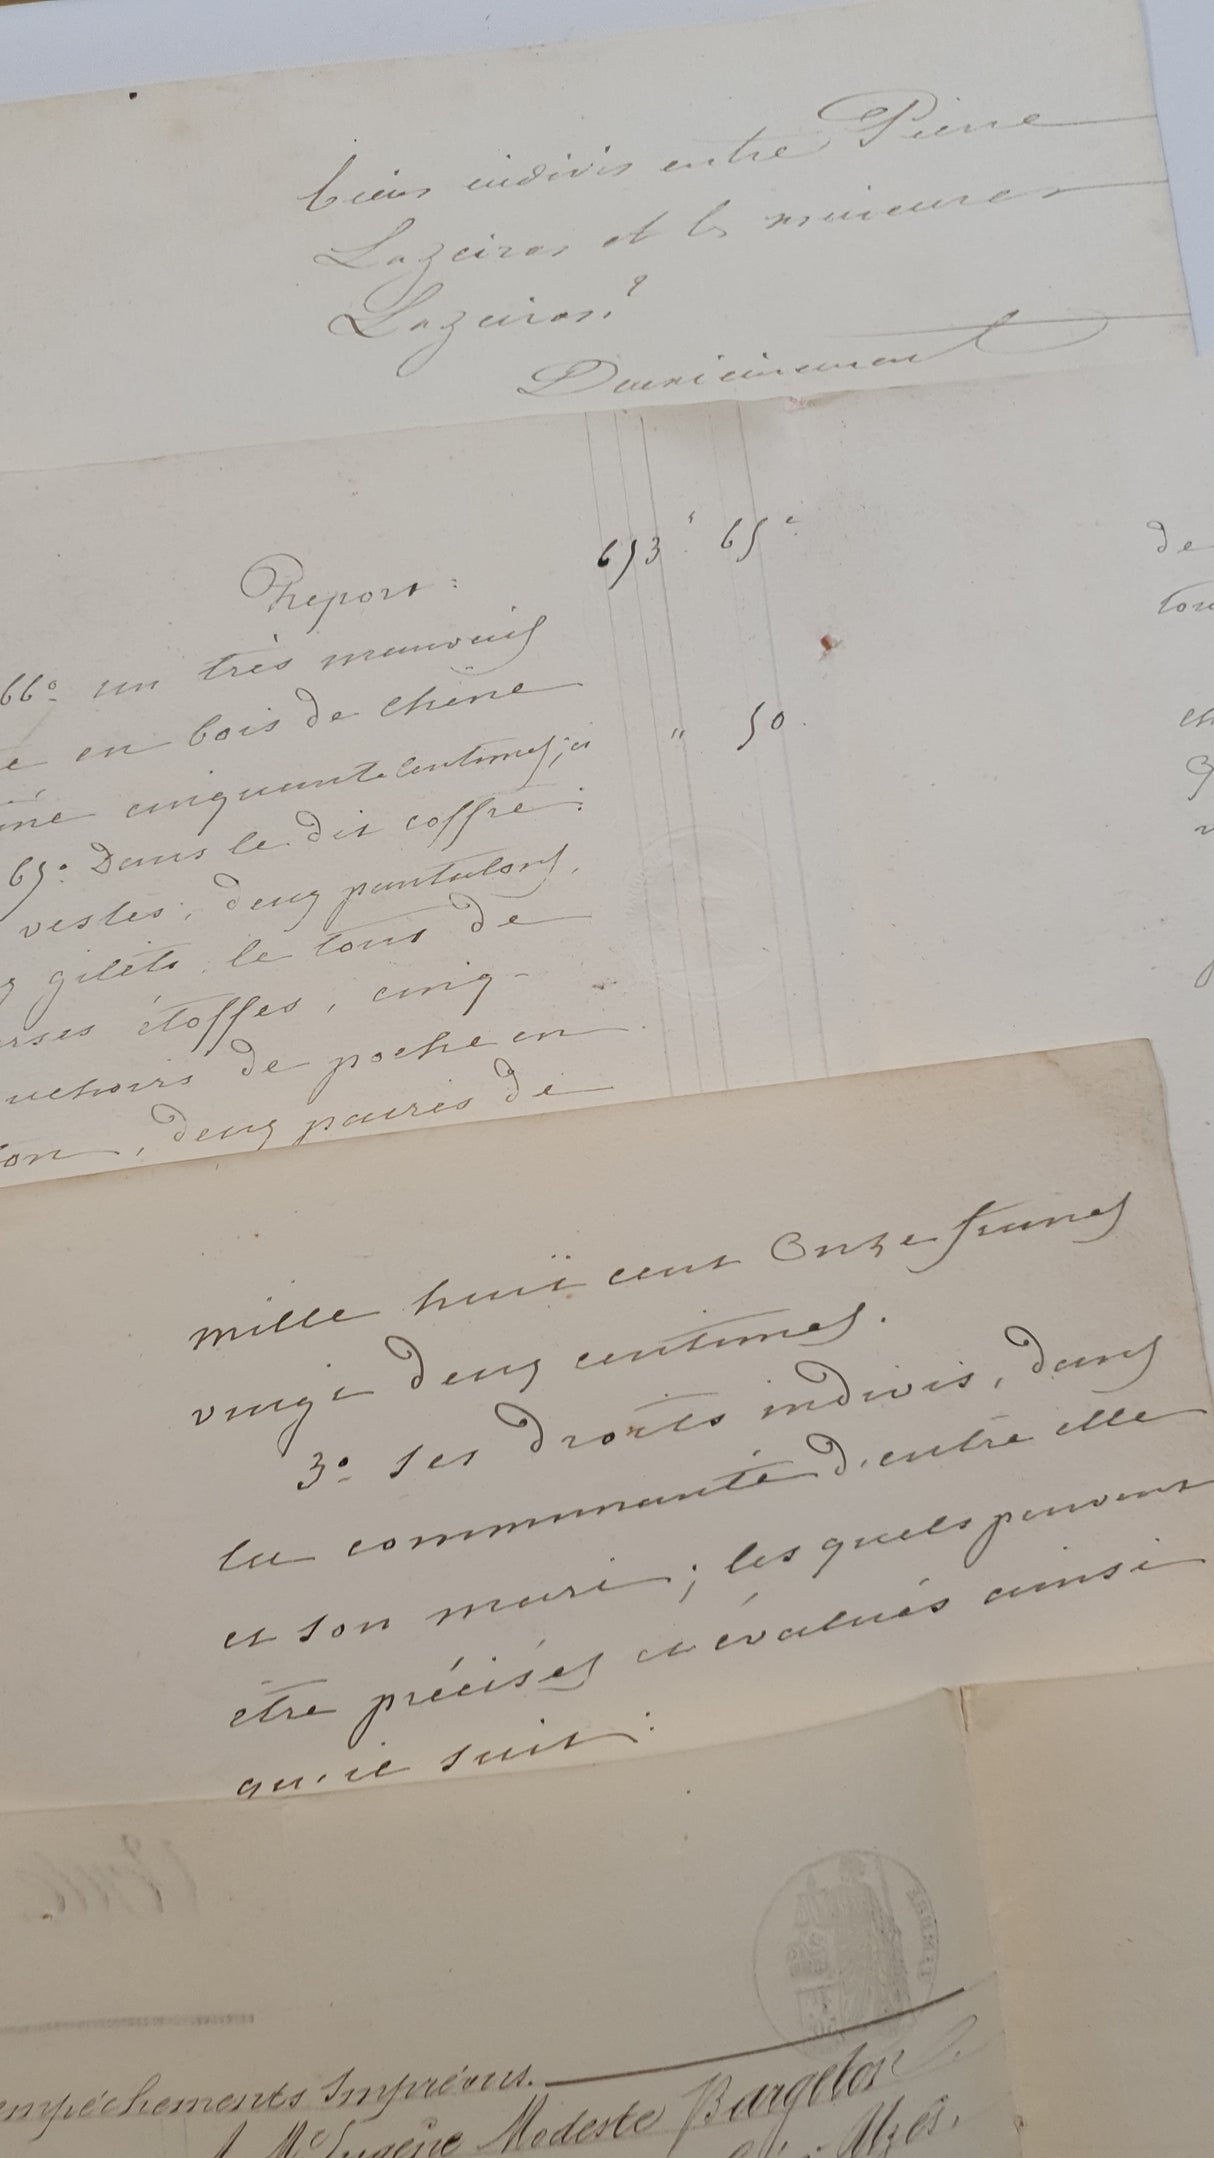 biens indivis entre Pierre
Lazeiras et les mineures
Lazeiras.
Report: 653 65 c
66° un très mauvais
en bois de chêne
cinquante centimes; ci " 50.
65° Dans le dit coffre:
vestes, deux pantalons,
gilets, le tout de
étoffes, cinq
de poche en
, deux paires de
de
mille huit cent Onze francs
vingt deux centimes.
3° ses droits indivis, dans
la communauté d'entre elle
et son mari; lesquels peuvent
être précisés et évalués ainsi
qu'il suit:
empêchements imprévus.
Me Eugène Modeste Bargeton
Uzès,